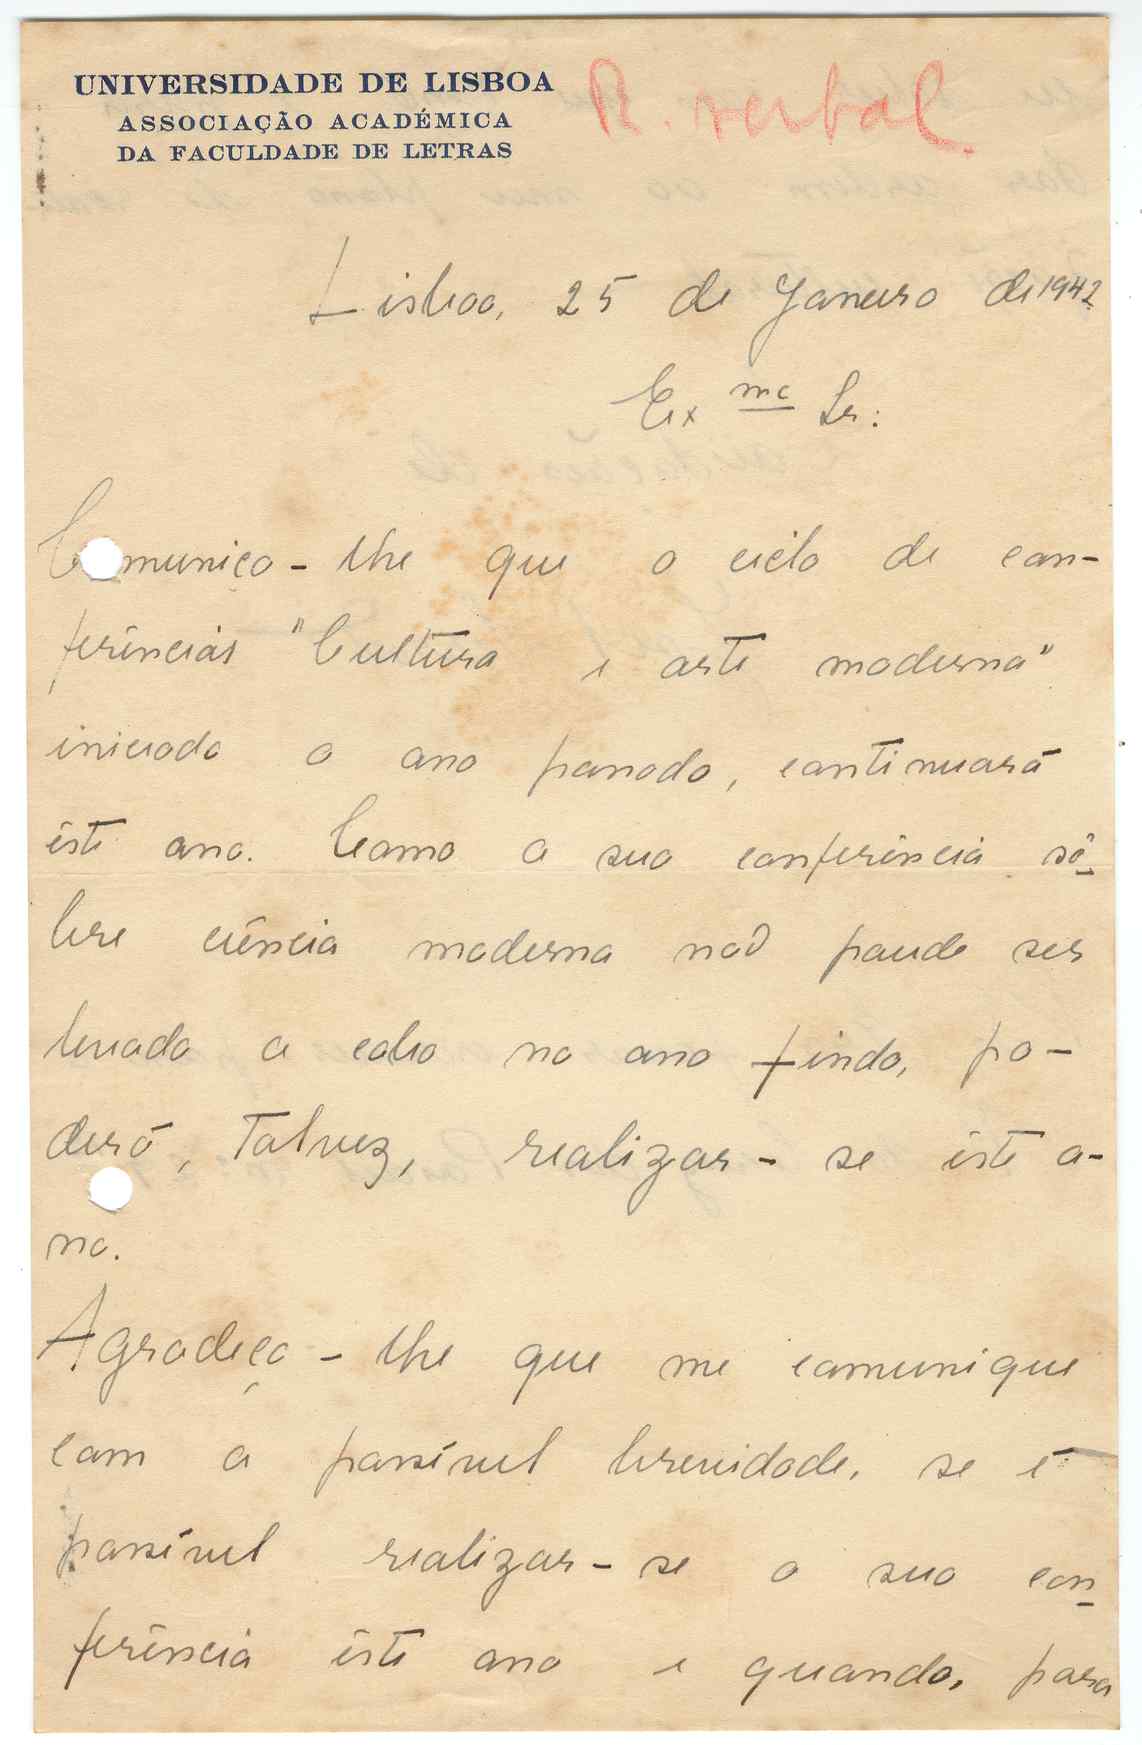 UNIVERSIDADE DE LISBOA
ASSOCIAÇÃO ACADÉMICA
DA FACULDADE DE LETRAS
R. verbal
Lisboa, 25 de Janeiro de 1942
Exmo Sr:
Comunico-lhe que o ciclo de con-
ferências "Cultura e arte moderna"
iniciado o ano passado, continuará
êste ano. Como a sua conferência sô-
bre ciência moderna não poude ser
levada a cabo no ano findo, po-
derá, talvez, realizar-se êste a-
no.
Agradeço-lhe que me comunique
com a possível brevidade, se é
possível realizar-se a sua con-
ferência êste ano e quando, para